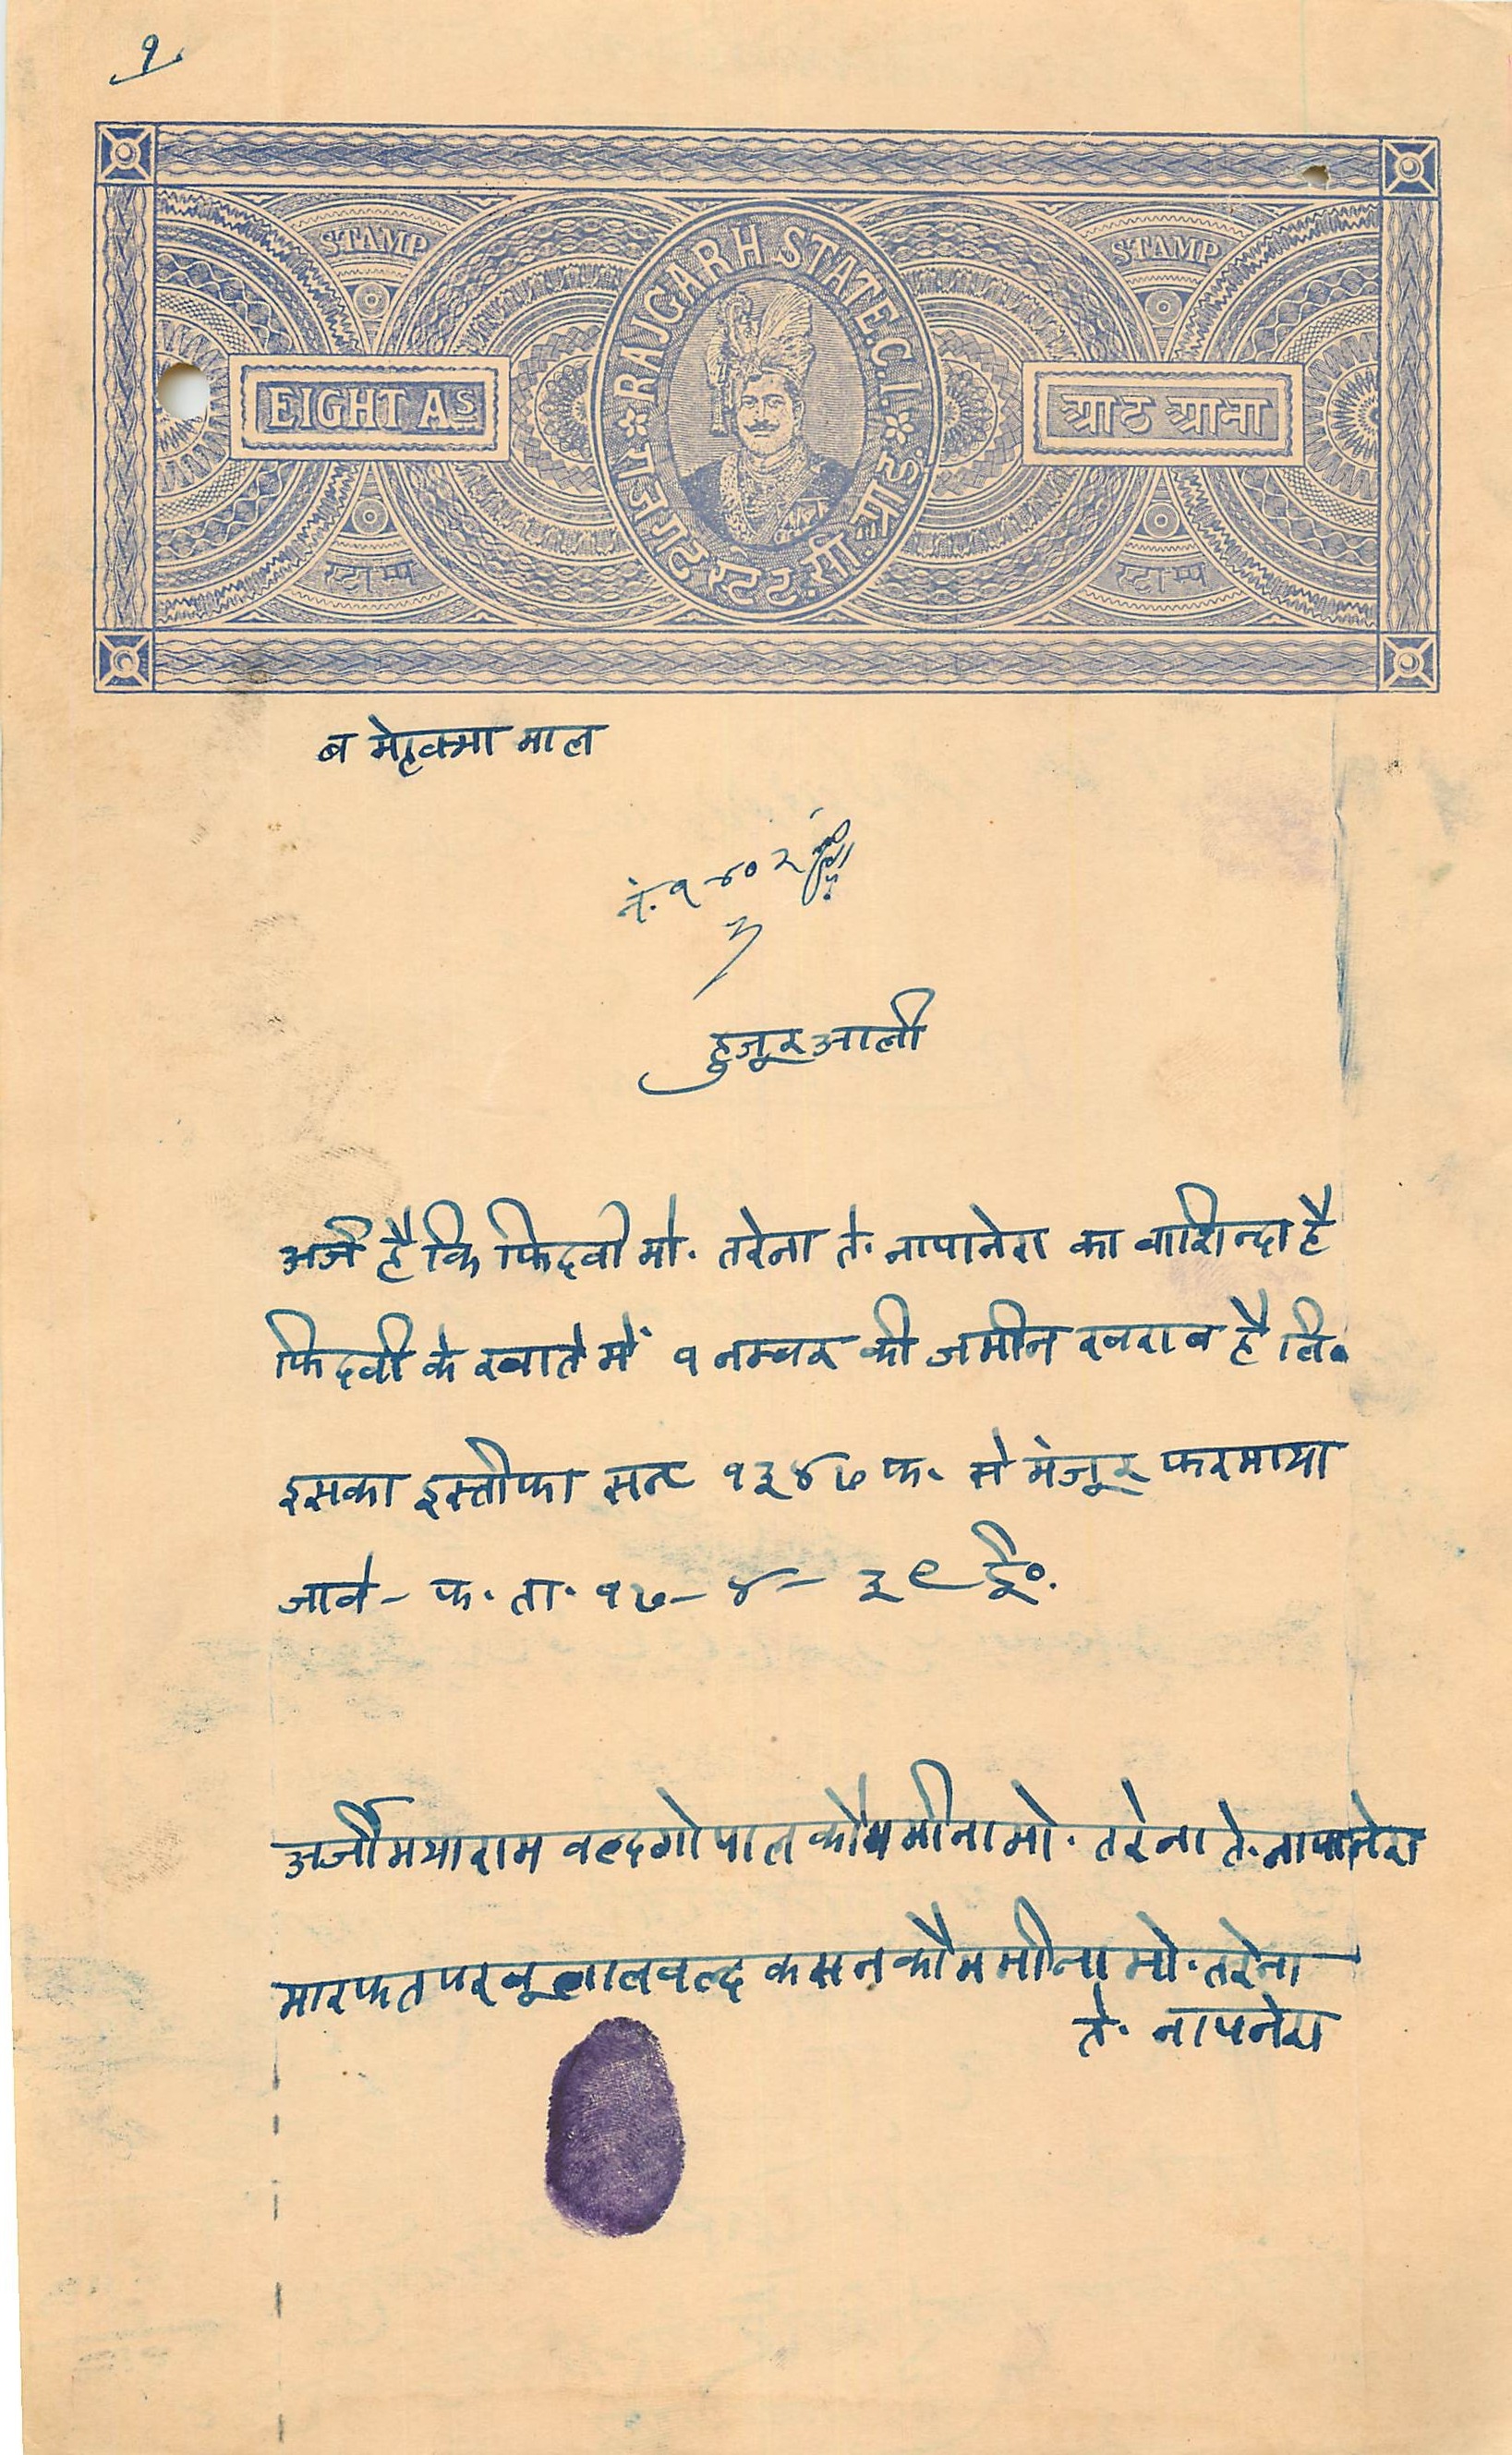 १
STAMP STAMP
RAJGARH STATE.C.I.
EIGHT AS आठ आना
राजगढ स्टेट.सी.आई.
स्टाम्प स्टाम्प
ब मेहकमा माल
नं. १४०२
हुजूर आली
अर्ज है कि फिदवी मो. तरेना ते. नापानेरा का बाशिन्दा है
फिदवी के खाते में १ नम्बर की जमीन खराब है लि०
इसका इस्तीफा सन १३४७ फ. से मंजूर फरमाया
जावे - फ. ता. १७-४-३९ ई०.
अर्जी मयाराम वल्द गोपाल कौम मीना मो. तरेना ते. नापानेरा
मारफत परबूलाल वल्द कसन कौम मीना मो. तरेना
ते. नापनेरा